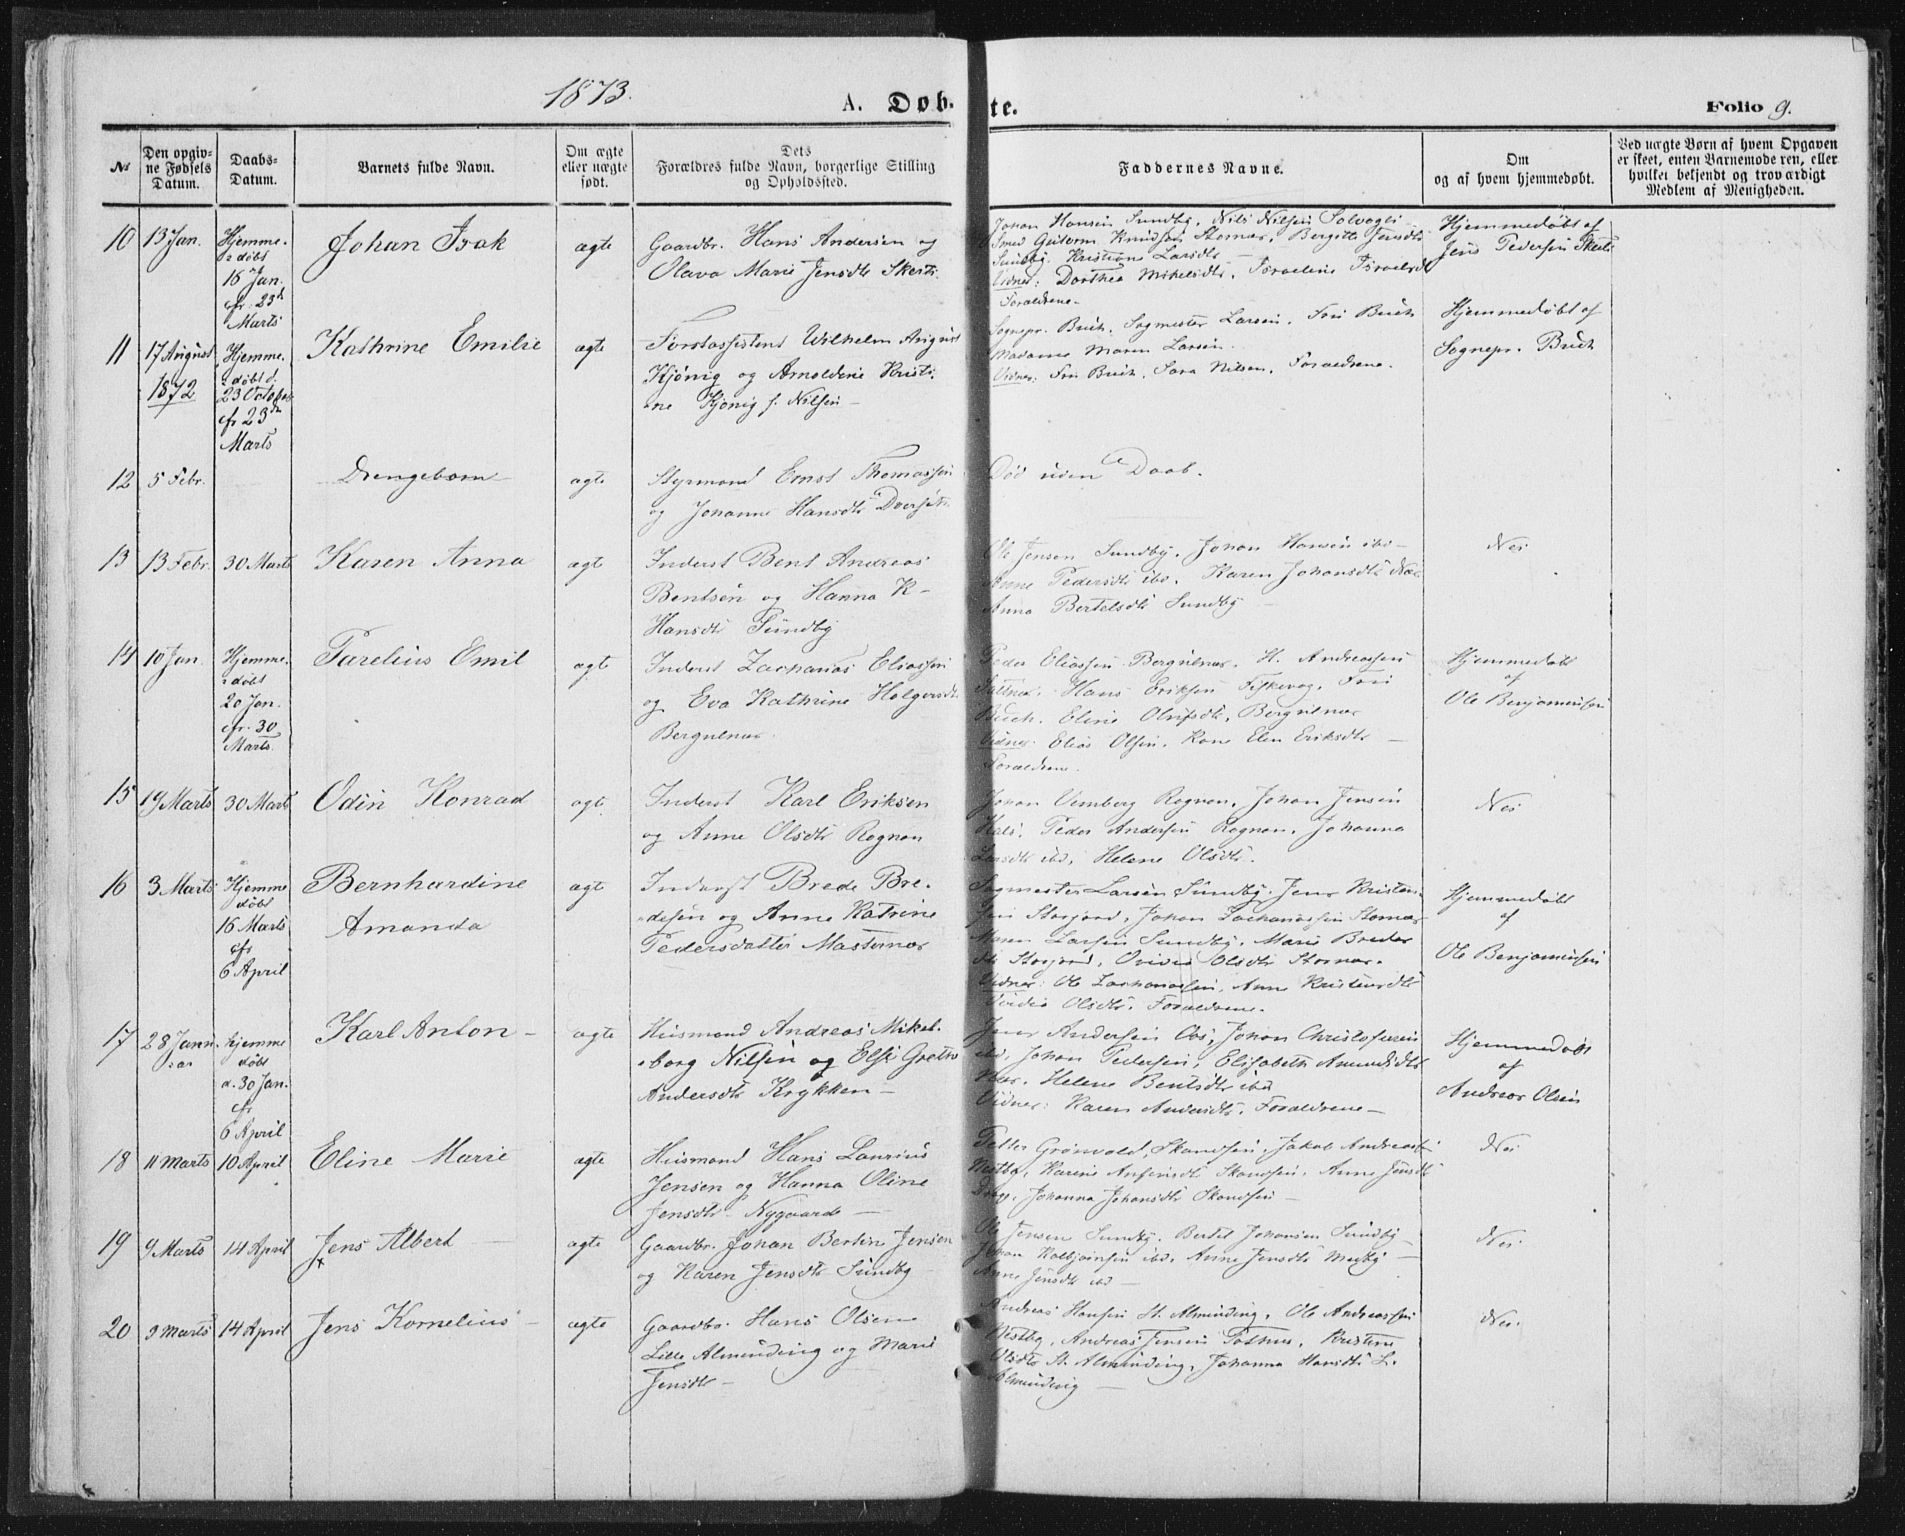 1873.
A. Døb-
te.
Folio 9.
No
Den opgiv-
ne Fødsels
Datum.
Daabs-
Datum.
Barnets fulde Navn.
Om ægte
eller uægte
født.
Dets
Forældres fulde Navn, borgerlige Stilling
og Opholdssted.
Faddernes Navne.
Om
og af hvem hjemmedøbt.
Ved uægte Børn af hvem Opgaven
er skeet, enten Barnemoderen, eller
hvilket bekjendt og troværdigt
Medlem af Menigheden.
10
13 Jan.
Hjemme-
døbt
16 Jan.
cfr. 23d
Marts
Johan Isak
ægte
Gaardbr. Hans Andersen og
Olava Marie Jensdtr
Johan Hansen Sundby, Nils Nilsen
Smed Guttorm Knudsen Stornær, Bergitte Jensdtr
Sundby. Kristiane Larsdtr
Vidner: Dorthea Mikelsdtr, Israeline Israelsdtr
Forældrene.
Hjemmedøbt af
Jens Pedersen
11
17 August
1872
Hjemme-
døbt d.
23 October
cfr 23de
Marts
Kathrine Emilie
ægte
Forstassistent Wilhelm August
Kjönig og Arnoldine Kristi-
ne Kjönig f. Nilsen
Sognepr. Buch. Sagmester Larsen. Fru Buch
Madame Maren Larsen.
Vidner: Fru Buch, Sara Nilsen, Forældrene.
Hjemmedøbt af
Sognepr. Buch
12
5 Febr.
Drengebarn
ægte
Styrmand Ernst Thomassen
og Johanne Hansdtr
Død uden Daab.
13
13 Febr.
30 Marts
Karen Anna
ægte
Inderst Bent Andreas
Bentsen og Hanna K
Hansdtr Sundby
Ole Jensen Sundby. Johan Hansen ibd
Anne Pedersdtr ibd. Karen Johansdtr
Anna Bertelsdtr Sundby
Nei
14
10 Jan.
Hjemme-
døbt
20 Jan.
cfr. 30
Marts.
Parelius Emil
ægte
Inderst Zacharias Eliassen
og Eva Kathrine Holgersdtr
Bergulnæs.
Peder Eliassen Bergulnæs. H. Andreassen
Hans Eriksen Fiskevaag. Fru
Buch. Eline Olufsdtr, Bergulnæs
Vidner: Elias Olsen. Kone Elen Eriksdtr
Forældrene.
Hjemmedøbt
af
Ole Benjaminsen
15
19 Marts
30 Marts
Odin Konrad
ægte
Inderst Karl Eriksen
og Anne Olsdtr Rognan
Johan Vemberg Rognan, Johan Jensen
Hals. Peder Andersen Rognan. Johanna
Larsdtr ibd. Helene Olsdtr.
Nei
16
3 Marts
Hjemme
døbt
16 Marts
cfr
6 April
Bernhardine
Amanda
ægte
Inderst Brede Bre-
desen og Anne Katrine
Pedersdatter Masternæs
Sagmester Larsen Sundby. Jens Kristen-
sen Storjord, Johan Zachariassen Stornæs
Maren Larsen Sundby, Marie Bredes
dtr Storjord, Olsdtr Stornæs.
Vidner: Ole Zachariassen, Anne Kristensdtr
Olsdtr. Forældrene.
Hjemmedøbt
af
Ole Benjaminsen
17
28 Janu
ar
hjemme
døbt
d. 30 Jan.
cfr
6 April
Karl Anton
ægte
Huusmand Andreas Mikal-
borg Nilsen og Elsie Grethe
Andersdtr Krykken
Andersen Johan Christofersen
ibd, Johan Pedersen, Elisabeth Amundsdtr
Næs. Helene Bentsdtr ibd
Vidner: Karen Andersdtr. Forældrene
Hjemmedøbt
af
Andreas Olsen
18
11 Marts
10 April
Eline Marie
ægte
Huusmand Hans Laurius
Jensen og Hanna Oline
Jensdtr Nygaard
Petter Grönvold, Skandsen, Jakob Andreasen
Vestby, Karine Anfinsdtr Skandsen. Anne Jensdtr
Johanna Johansdtr Skandsen
Nei
19
9 Marts
14 April
Jens Albert
ægte
Gaardbr. Johan Bertin Jensen
og Karen Jensdtr Sundby
Ole Jensen Sundby. Bertel Johansen Sundby
Johan Kolbjørnsen ibd, Anne Jensdtr
Anne Jensdtr ibd
Nei.
20
9 Marts
14 April
Jens Kornelius
ægte
Gaardbr. Hans Olsen
Lille Alminding og Marie
Jensdtr
Andreas Hansen St. Alminding. Ole Andreassen
Vestby, Andreas Jensen Kristine
Olsdtr St. Alminding, Johanna Hansdtr L.
Alminding
Nei.